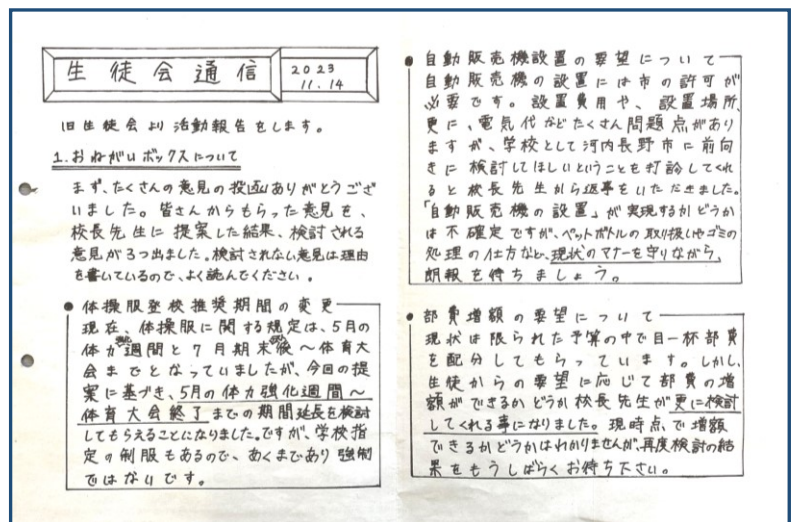 生徒会通信
2023
11.14
旧生徒会より活動報告をします。
1.おねがいボックスについて
まず、たくさんの意見の投函ありがとうござ
いました。皆さんからもらった意見を、
校長先生に提案した結果、検討される
意見が3つ出ました。検討されない意見は理由
を書いているので、よく読んでください。
●体操服登校推奨期間の変更
現在、体操服に関する規定は、5月の
体力週間と7月期末後～体育大
会までとなっていましたが、今回の提
案に基づき、5月の体力強化週間～
体育大会終了までの期間延長を検討
してもらえることになりました。ですが、学校指
定の制服もあるので、あくまであり強制
ではないです。
●自動販売機設置の要望について
自動販売機の設置には市の許可が
必要です。設置費用や、設置場所、
更に、電気代などたくさん問題点があり
ますが、学校として河内長野市に前向
きに検討してほしいということを打診してくれ
ると校長先生から返事をいただきました。
「自動販売機の設置」が実現するかどうか
は不確定ですが、ペットボトルの取り扱いやゴミの
処理の仕方など、現状のマナーを守りながら、
朗報を待ちましょう。
●部費増額の要望について
現状は限られた予算の中で目一杯部費
を配分してもらっています。しかし、
生徒からの要望に応じて部費の増
額ができるかどうか校長先生が更に検討
してくれる事になりました。現時点で増額
できるかどうかはわかりませんが、再度検討の結
果をもうしばらくお待ち下さい。